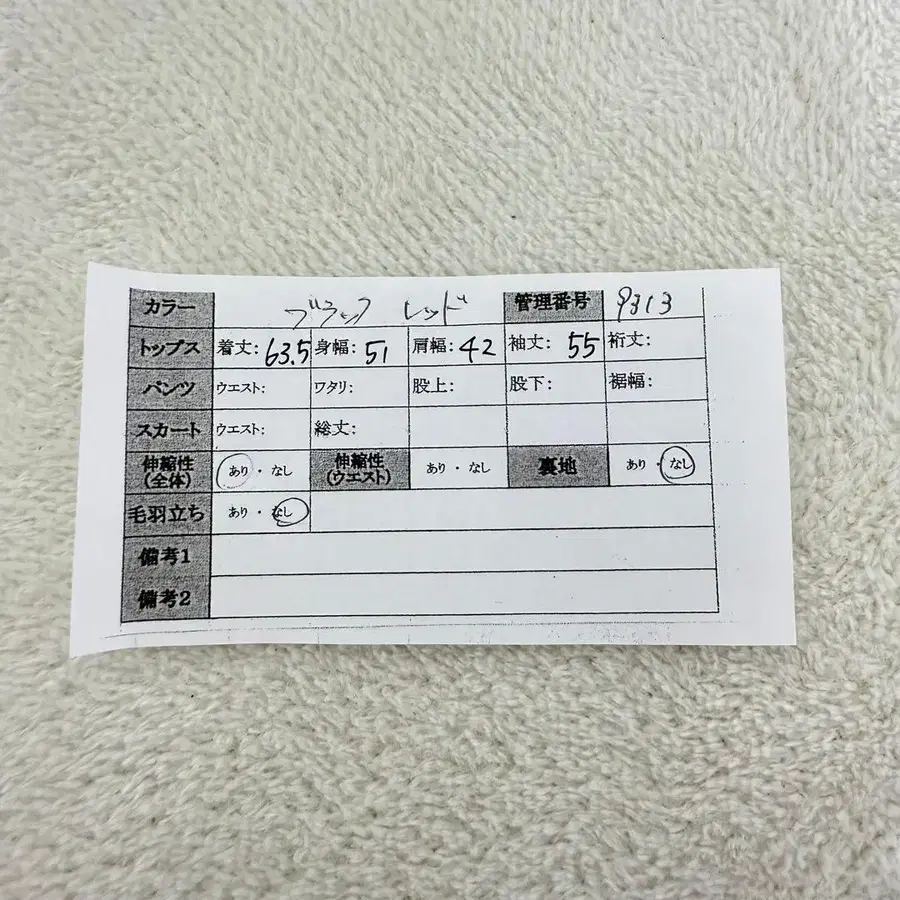 カラー ブラック レッド 管理番号 9313
トップス 着丈: 63.5 身幅: 51 肩幅: 42 袖丈: 55 裄丈:
パンツ ウエスト: ワタリ: 股上: 股下: 裾幅:
スカート ウエスト: 総丈:
伸縮性 (全体) あり・なし 伸縮性 (ウエスト) あり・なし 裏地 あり・なし
毛羽立ち あり・なし
備考1
備考2